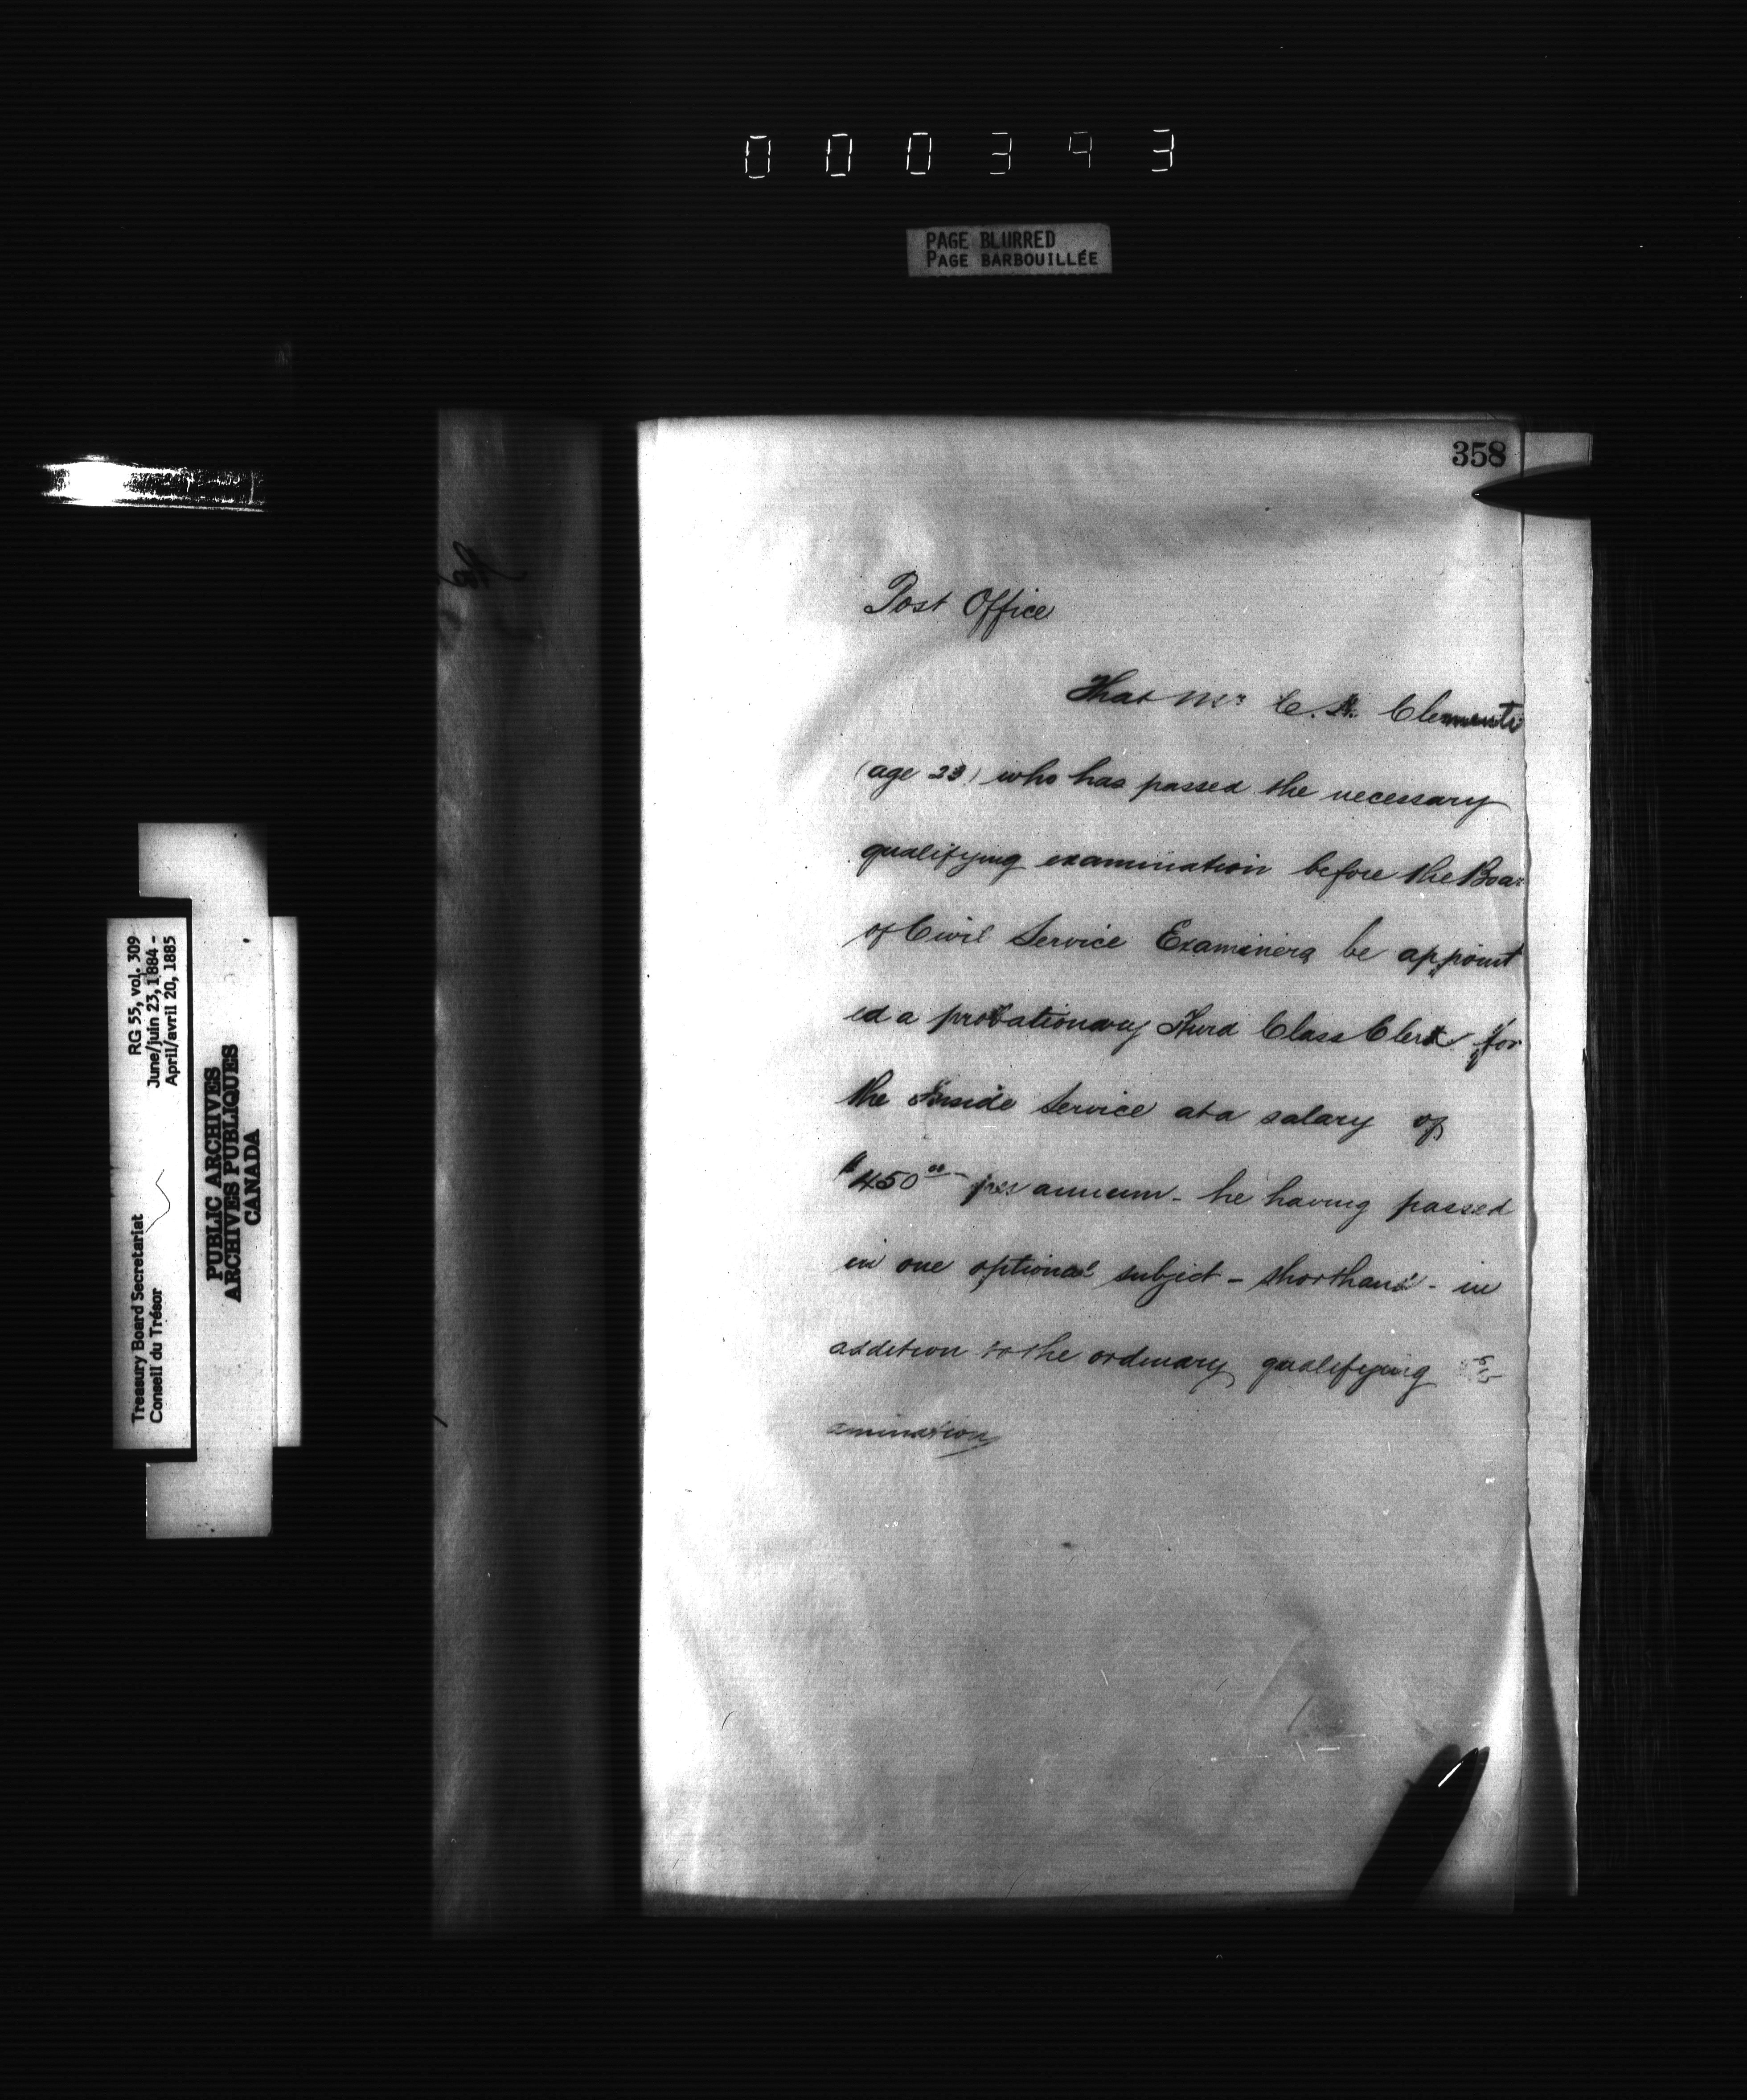 000393
PAGE BLURRED
PAGE BARBOUILLÉE
358
Post Office
That Mr C. Clements
(age 23) who has passed the necessary
qualifying examination before the Boar
of Civil Service Examiners be appoint
ed a probationary Third Class Clerk for
the Inside Service at a salary of
$450.00 per annum - he having passed
in one optional subject - shorthand - in
addition to the ordinary qualifying
amination
RG 55, vol. 309
June/juin 23, 1884 -
April/avril 20, 1885
Treasury Board Secretariat
Conseil du Trésor
PUBLIC ARCHIVES
ARCHIVES PUBLIQUES
CANADA